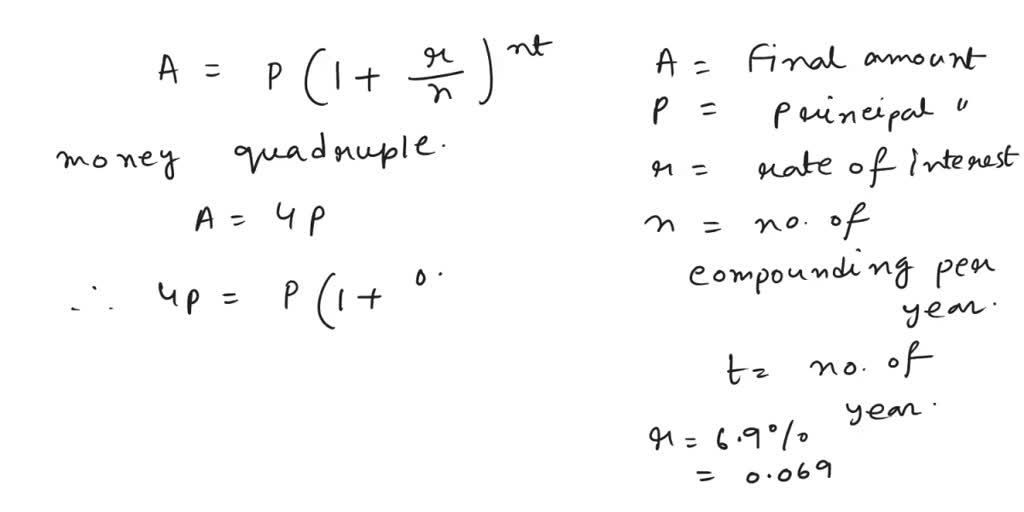 A = P(1 + r/n)^nt
money quadruple.
A = 4P
∴ 4P = P(1 + 0.
A = Final amount
P = Principal "
r = rate of interest
n = no. of
compounding per
year.
t = no. of
year.
r = 6.9%
= 0.069